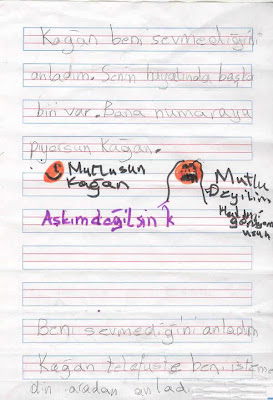 Kağan beni sevmediğini
anladım. Senin hayatında başka
biri var. Bana numaraya
pıyorsun Kağan.
Mutlusun
Kağan
Mutlu
Deyilim
Aşkım değilsin k
Beni sevmediğini anladım
Kağan telefuste beni isteme
din aradan anlad